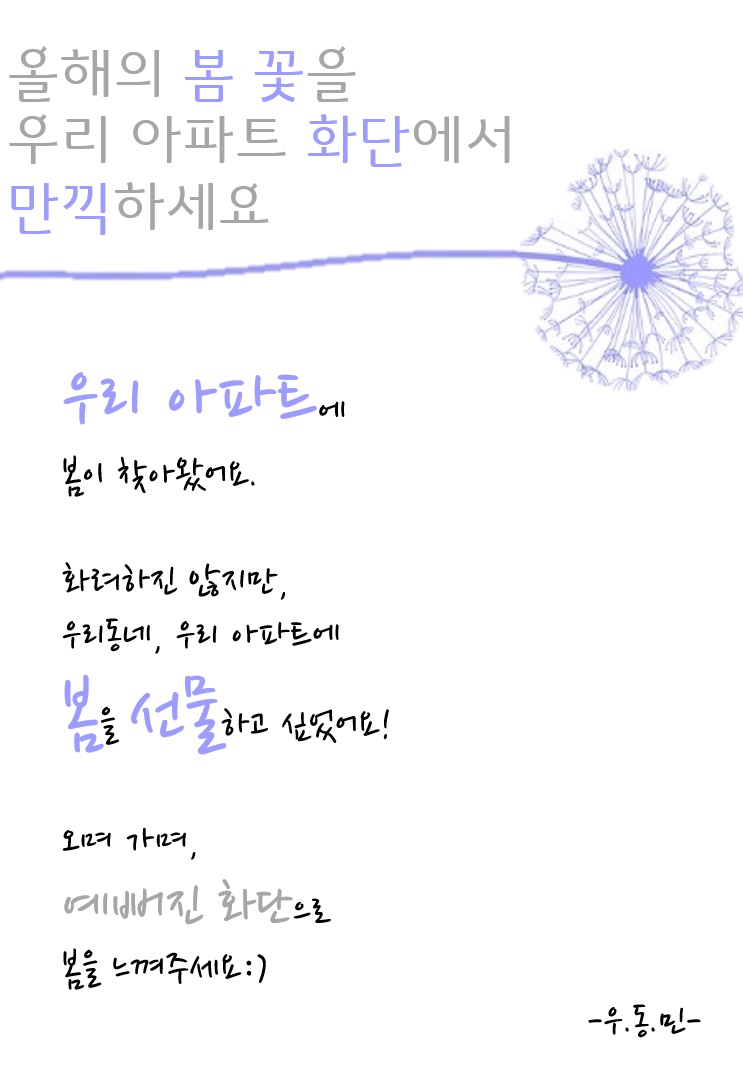 올해의 봄 꽃을
우리 아파트 화단에서
만끽하세요
우리 아파트에
봄이 찾아왔어요.
화려하진 않지만,
우리동네, 우리 아파트에
봄을 선물하고 싶었어요!
오며 가며,
예뻐진 화단으로
봄을 느껴주세요:)
-우.동.민-